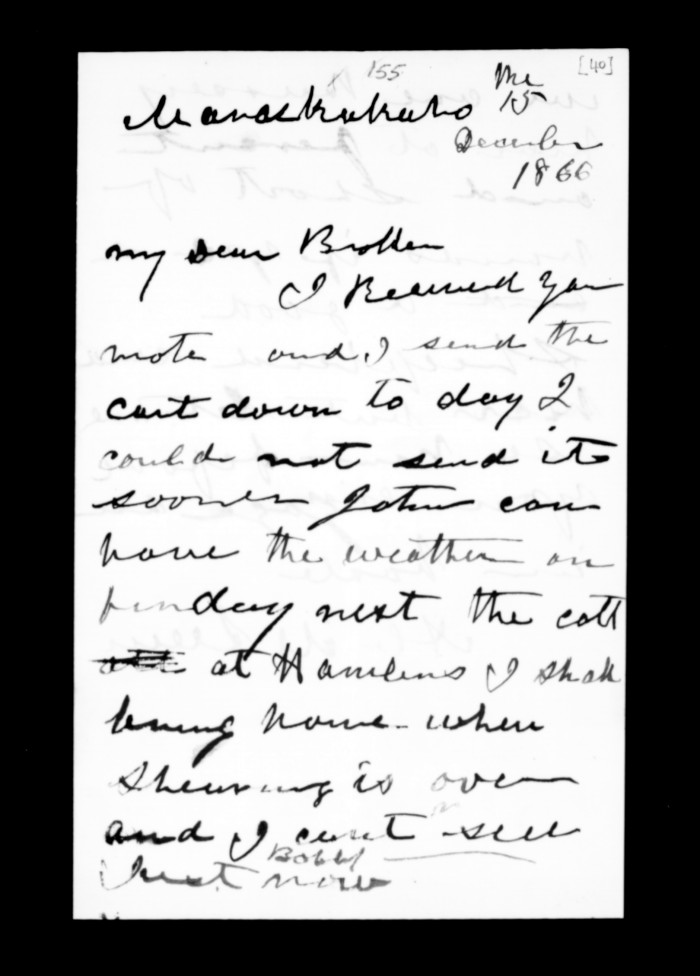 155
[40]
the
15
December
1866
my Dear Brother
I Received your
note and I send the
cart down to day I
could not send it
sooner John can
have the weather on
next the colt
at Hamlins I shall
bring home when
shearing is over
and I cant sell
Bobby
Just now